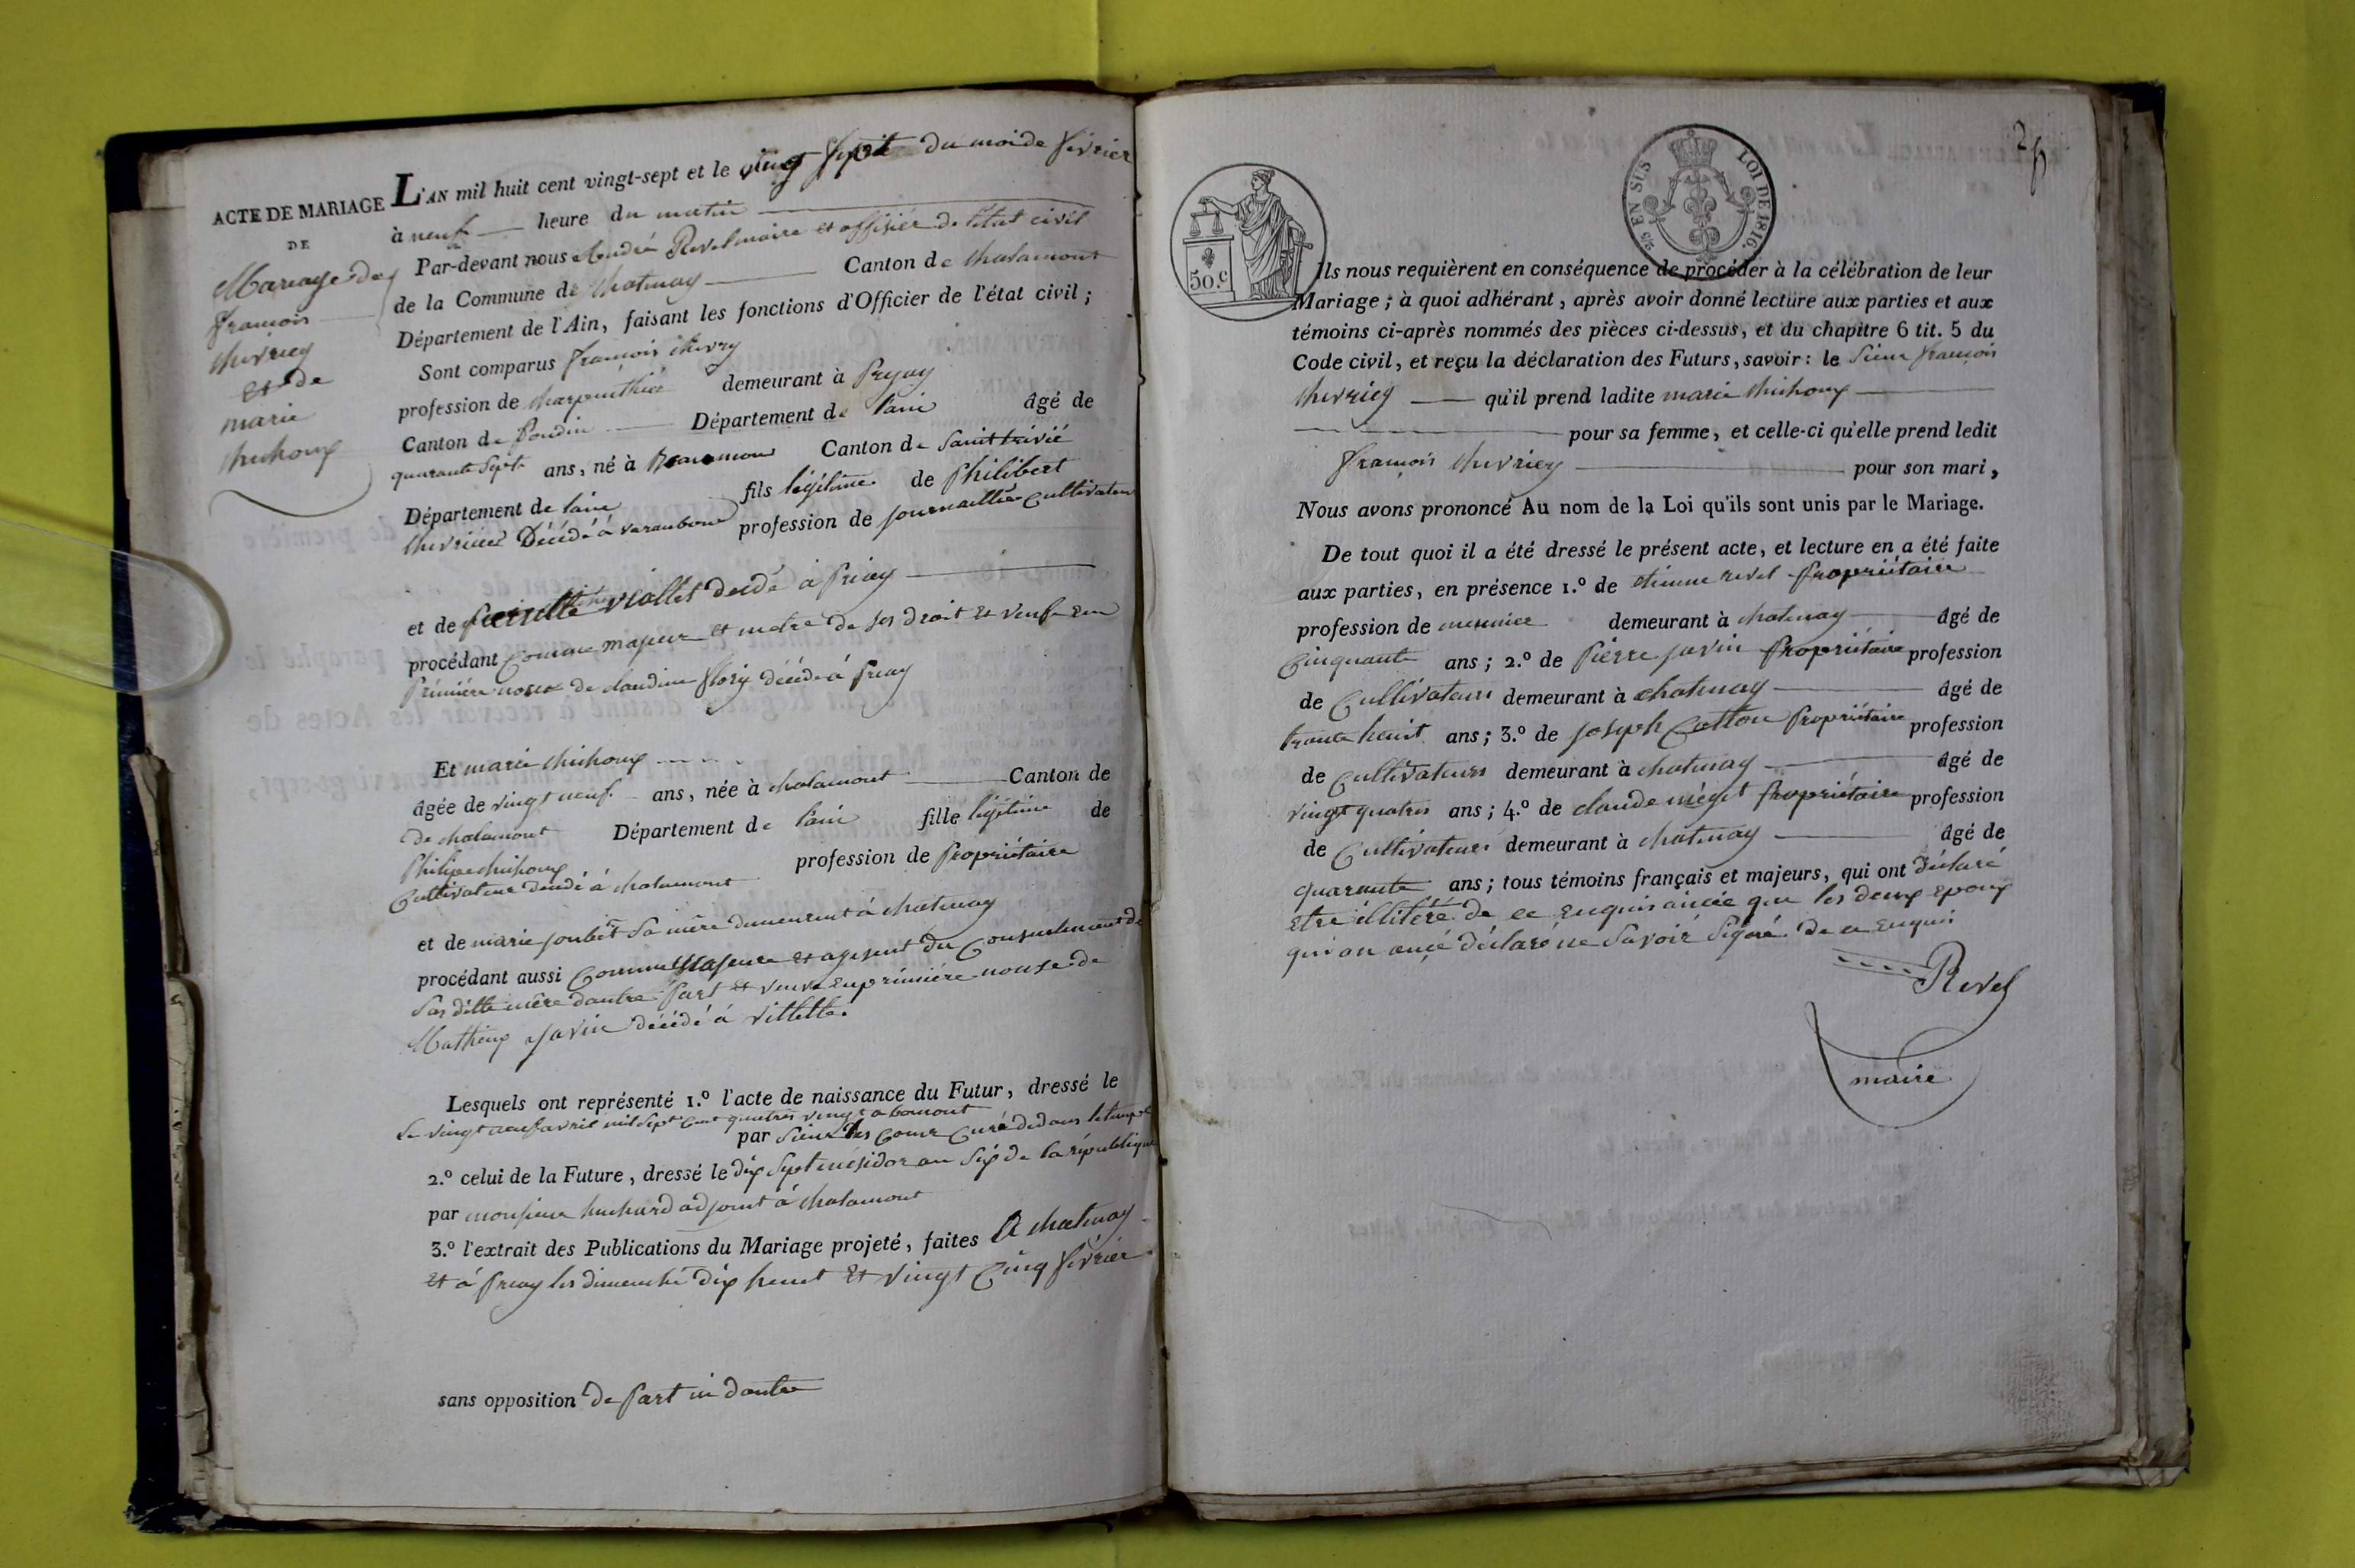 ACTE DE MARIAGE
DE
Mariage de
francois
chevriey
et de
marie
chichoux
L'AN mil huit cent vingt-sept et le vingt sept du moi de fevrier
à neuf heure du matin
Par-devant nous André Revel maire et offisier de létat civil
de la Commune de Chatenay Canton de Chalamont
Département de l'Ain, faisant les fonctions d'Officier de l'état civil ;
Sont comparus francois chevry
profession de charpenthier demeurant à Priay
Canton de Pondin Département de l'ain âgé de
quarante sept ans, né à Canton de Saint trivié
Département de lain fils légitime de Philibert
Décédé à varanbon profession de journaillié Cultivateur
et de viallet décédé à Priay
procédant Comme majeur et metre de ses droit et veuf en
Première nosse de claudine flory décédé à Priay
Et marie chichoux
âgée de vingt neuf ans, née à chalamont Canton de
de chalamont Département de l'ain fille légitime de
Philipe chichoux
Cultivateur décédé à chalamont profession de Propriétaire
et de marie joubert Sa mère demeurant à chatenay
procédant aussi Comme Majeure et agissent du Consentement de
Sa ditte mère dautre Part et veuve en première nousse de
Mathieux javin décédé à villette.
Lesquels ont représenté 1.º l'acte de naissance du Futur, dressé le
Le vingt neuf avril mil sept cent quatres vingt a
par Sieur Curé dedans le temps
2.º celui de la Future, dressé le dix Sept mésidor an Six de la république
par monsieur adjoint à chalamont
3.º l'extrait des Publications du Mariage projeté, faites A chatenay
et à Priay les dimenche dix heuit et vingt Cinq février
sans opposition de Part ni dautre
50.C
2/5 EN SUS
LOI DE 1816.
Ils nous requièrent en conséquence de procéder à la célébration de leur
Mariage ; à quoi adhérant, après avoir donné lecture aux parties et aux
témoins ci-après nommés des pièces ci-dessus, et du chapitre 6 tit. 5 du
Code civil, et reçu la déclaration des Futurs, savoir : le Sieur françois
chevriey qu'il prend ladite marie chichoux
pour sa femme, et celle-ci qu'elle prend ledit
françois chevriey pour son mari,
Nous avons prononcé Au nom de la Loi qu'ils sont unis par le Mariage.
De tout quoi il a été dressé le présent acte, et lecture en a été faite
aux parties, en présence 1.º de etienne revel Propriétaire
profession de meunier demeurant à chatenay âgé de
Cinquante ans ; 2.º de Pierre javin Propriétaire profession
de Cultivateur demeurant à chatenay âgé de
trante heuit ans ; 3.º de joseph Cotton Propriétaire profession
de Cultivateurs demeurant à chatenay âgé de
vingt quatres ans ; 4.º de claude Propriétaire profession
de Cultivateur demeurant à chatenay âgé de
quarante ans ; tous témoins français et majeurs, qui ont déclaré
etre illitéré de ce enquis que les deux epoux
qui on déclaré ne Savoir Signé de ce enquis
Revel
maire